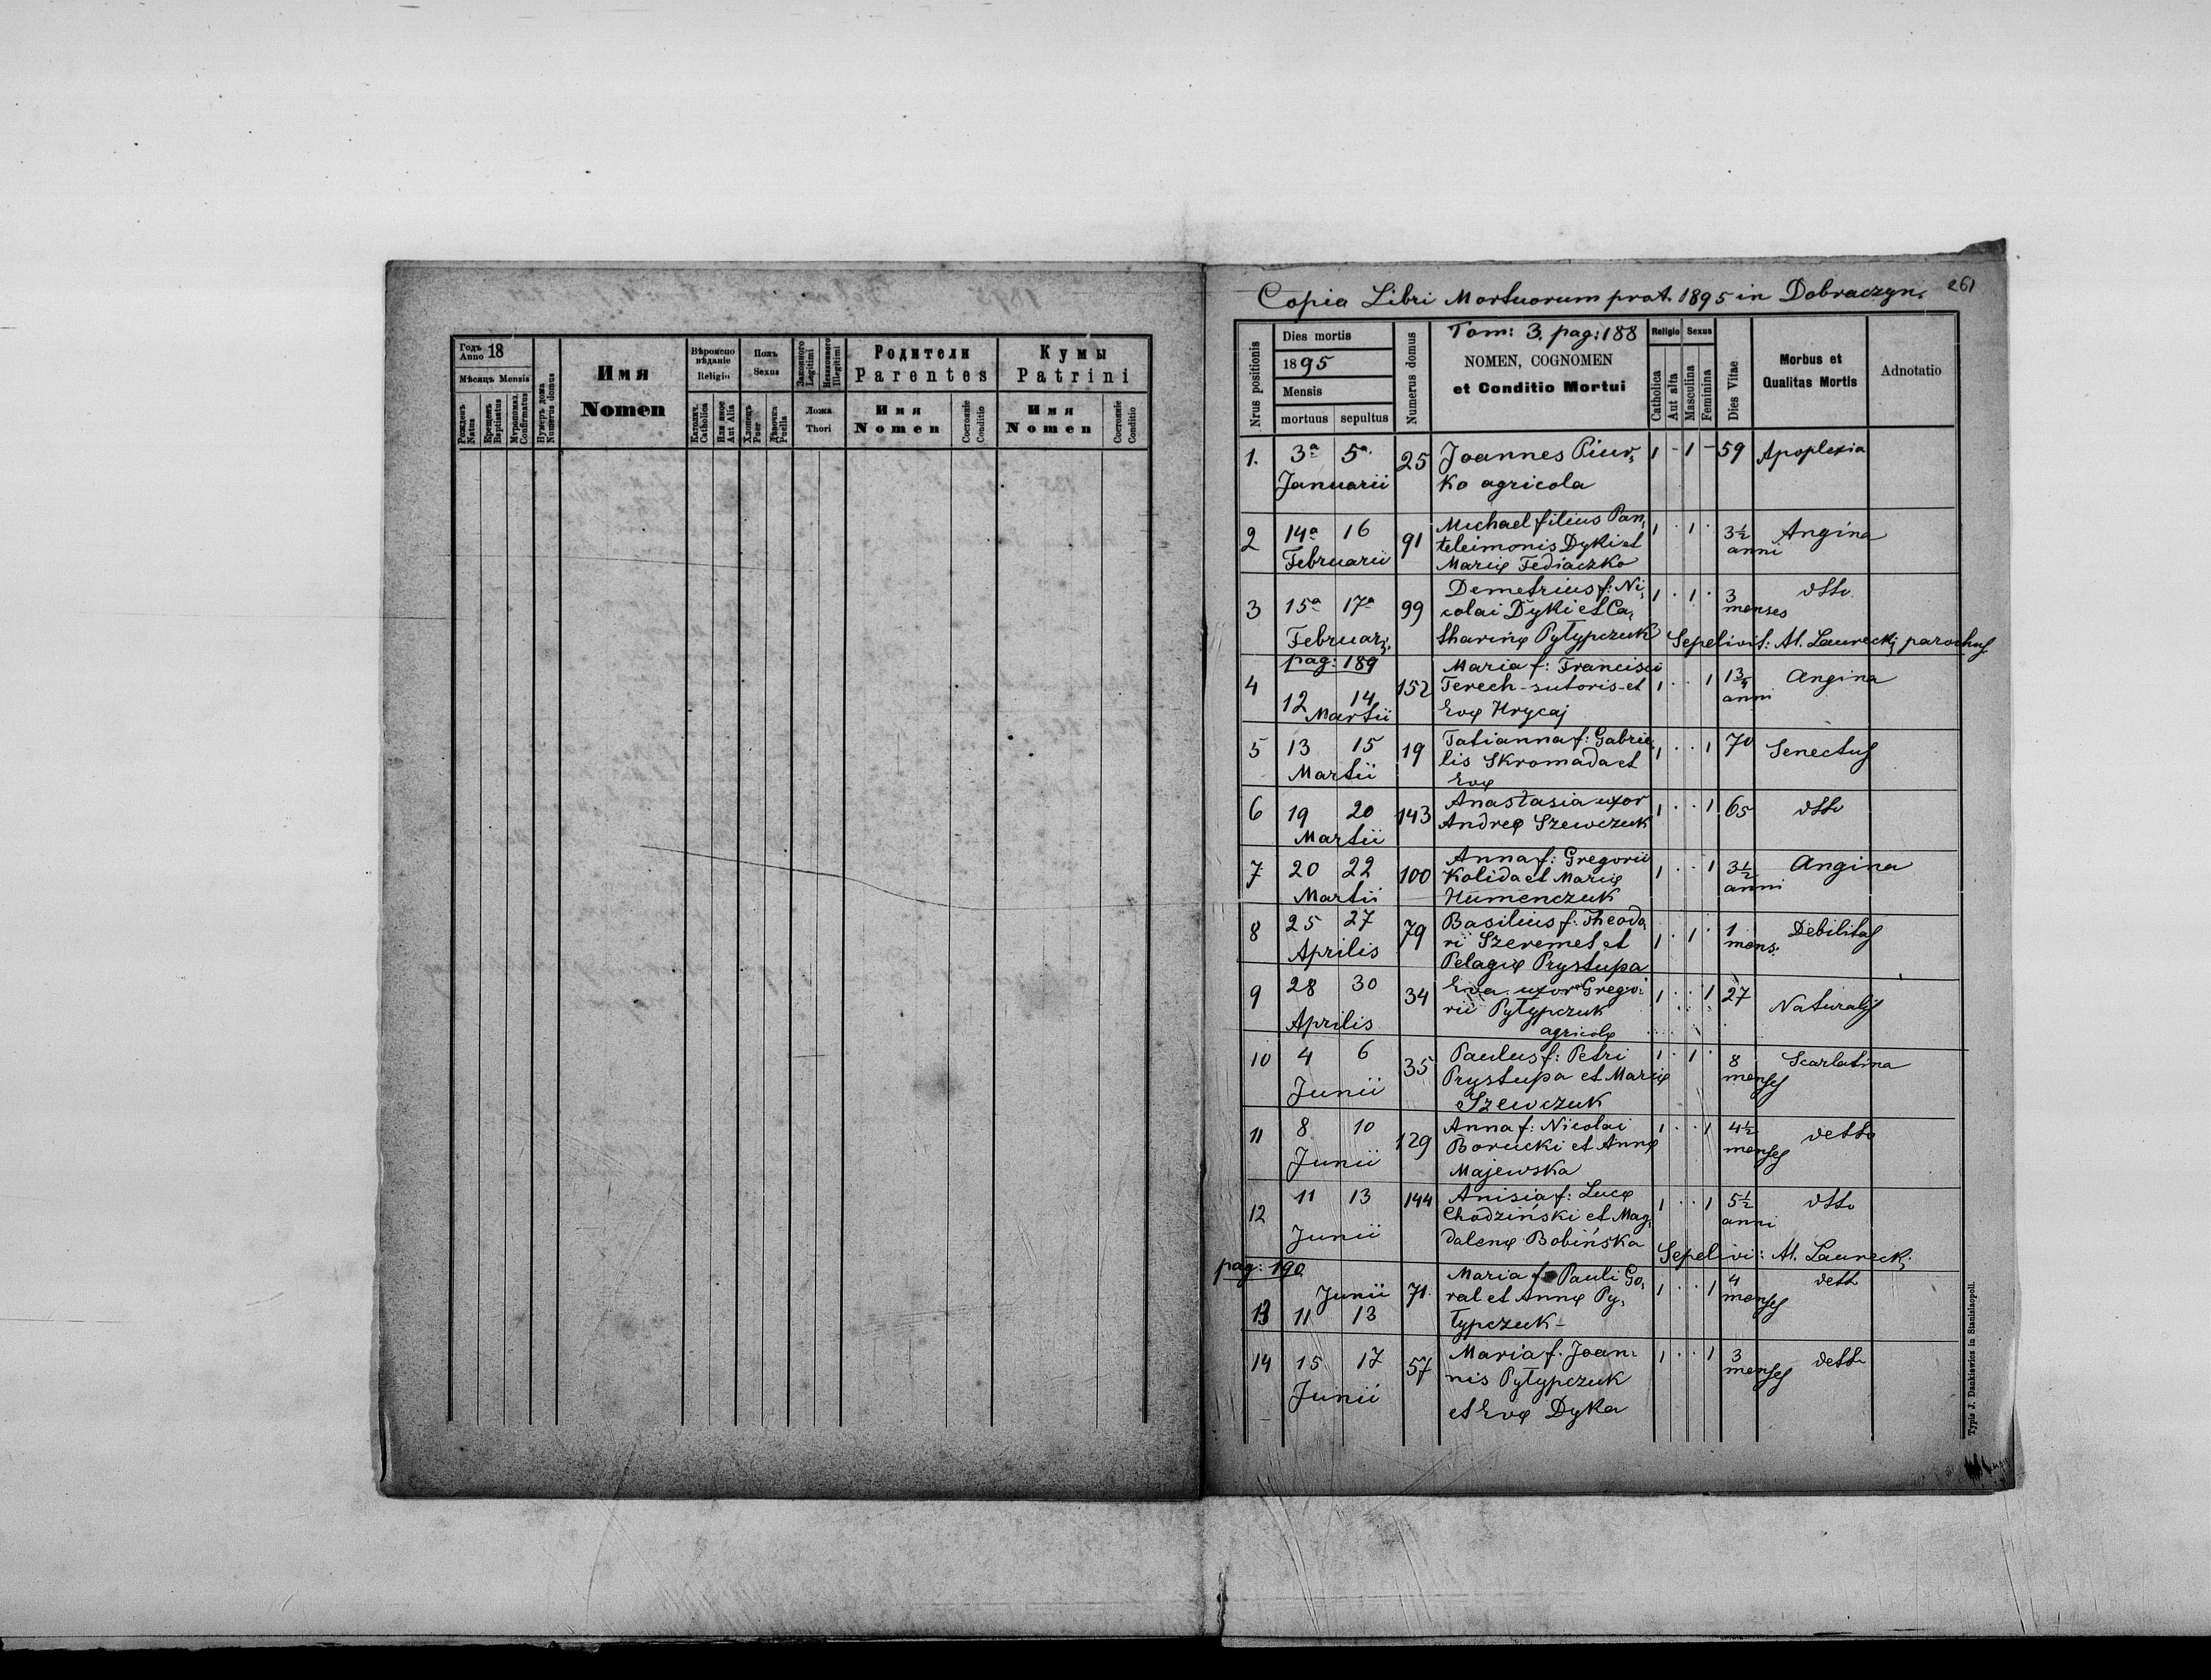 Годъ
Anno 18
Мѣсяцъ Mensis
Рожденъ
Natus
Крещенъ
Baptisatus
Муропомаз.
Confirmatus
Нумеръ дома
Numerus domus
Имя
Nomen
Вѣроиспо
вѣданіе
Religio
Католич.
Catholica
Или иное
Aut Alia
Полъ
Sexus
Хлопецъ
Puer
Дѣвочка
Puella
Законного
Legitimi
Незаконного
Illegitimi
Ложа
Thori
Родители
Parentes
Имя
Nomen
Состояніе
Conditio
Кумы
Patrini
Имя
Nomen
Состояніе
Conditio
Copia Libri Mortuorum prot. 1895 in Dobraczyn. 261
Nrus positionis
Dies mortis
1895
Mensis
mortuus sepultus
Numerus domus
Tom: 3. pag: 188
NOMEN, COGNOMEN
et Conditio Mortui
Religio Sexus
Catholica
Aut alta
Masculina
Feminina
Dies Vitae
Morbus et
Qualitas Mortis
Adnotatio
1. 3ª 5ª 25 Joannes Piur, 1 - 1 - 59 Apoplexia
Januarii ko agricola
2 14ª 16 91 Michael filius Pan, 1 . 1 . 3½ Angina
Februarii teleimonis Dyki et anni
Marię Fediaczko
3 15ª 17ª 99 Demetrius f: Ni, 1 . 1 . 3 dtto.
colai Dyki et Ca, menses
Februar. tharinę Pyłypczuk Sepelivit: Al. Laurecki parochus
pag: 189
4 12 14 152 Maria f: Francisci 1 . . 1 1¾ Angina
Martii Terech - sutoris - et anni
Evę Hrycaj
5 13 15 19 Tatianna f: Gabrie, 1 . . 1 70 Senectus
Martii lis Skromada et
Evę
6 19 20 143 Anastasia uxor 1 . . 1 65 dtto
Martii Andreę Szewczuk
7 20 22 100 Anna f: Gregorii 1 . . 1 3½ Angina
Martii Kolida et Marię anni
Humenczuk
8 25 27 79 Basilius f: Theodo, 1 . 1 . 1 Debilitas
Aprilis ri Szeremet et mens.
Pelagię Prystupa
9 28 30 34 Eva uxor Grego, 1 . . 1 27 Naturalis
Aprilis rii Pyłypczuk
agricolę
10 4 6 35 Paulus f: Petri 1 . 1 . 8 Scarlatina
Junii Prystupa et Marię menses
Szewczuk
11 8 10 129 Anna f: Nicolai 1 . . 1 4½ detto
Junii Borucki et Annę menses
Majewska
12 11 13 144 Anisia f: Lucę 1 . . 1 5½ dtto
Junii Chodziński et Mag, anni
dalenę Bobińska
Sepelivi: Al. Laurecki
pag: 190
13 11 13 Junii 71 Maria f Pauli Go, 1 . . 1 4 dett
ral et Annę Py, menses
łypczuk -
14 15 17 57 Maria f. Joan, 1 . . 1 3 detto
Junii nis Pyłypczuk menses
et Evę Dyka
Typis J. Dankiewics in Stanislaopoli.